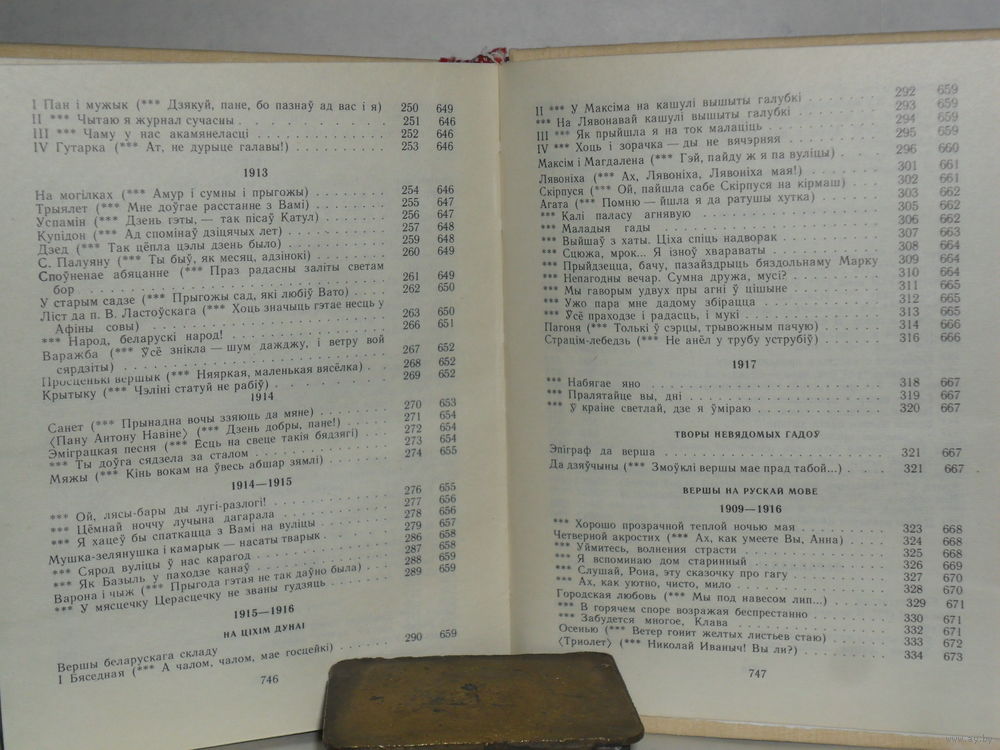 I Пан і мужык (*** Дзякуй, пане, бо пазнаў ад вас і я) 250 649
II *** Чытаю я журнал сучасны . . . 251 646
III *** Чаму у нас акамянеласці 252 646
IV Гутарка (*** Ат, не дурыце галавы!) 253 646
1913
На могілках (*** Амур і сумны і прыгожы) 254 646
Трыялет (*** Мне доўгае расстанне з Вамі) 255 647
Успамін (*** Дзень гэты, — так пісаў Катул) 256 647
Купідон (*** Ад спомінаў дзіцячых лет) 257 648
Дзед (*** Так цёпла цэлы дзень было) 259 648
С. Палуяну (*** Ты быў, як месяц, адзінокі) 260 649
Споўненае абяцанне (*** Праз радасны заліты светам
бор 261 649
У старым садзе (*** Прыгожы сад, які любіў Вато) 262 650
Ліст да п. В. Ластоўскага (*** Хоць значыць гэтае несць у
Афіны совы) 263 650
*** Народ, беларускі народ! 266 651
Варажба (*** Ўсё знікла — шум дажджу, і ветру вой
сярдзіты) 267 652
Просценькі вершык (*** Няяркая, маленькая вясёлка) 268 652
Крытыку (*** Чэліні статуй не рабіў) 269 652
1914
Санет (*** Прынадна вочы ззяюць да мяне) 270 653
⟨Пану Антону Навіне⟩ (*** Дзень добры, пане!) 271 654
Эміграцкая песня (*** Ёсць на свеце такія бадзягі) 272 654
*** Ты доўга сядзела за сталом 273 654
Мяжы (*** Кінь вокам на ўвесь абшар зямлі) 274 655
1914—1915
*** Ой, лясы-бары ды лугі-разлогі! 276 655
*** Цёмнай ноччу лучына дагарала 277 656
*** Я хацеў бы спаткацца з Вамі на вуліцы 278 656
Мушка-зелянушка і камарык — насаты тварык 279 657
*** Сярод вуліцы ў нас карагод 286 658
*** Як Базыль у паходзе канаў 287 658
Варона і чыж (*** Прыгода гэтая не так даўно была) 288 659
*** У мясцечку Церасцечку не званы гудзяць 289 659
1915—1916
НА ЦІХІМ ДУНАІ
Вершы беларускага складу
I Бяседная (*** А чалом, чалом, мае госцейкі) 290 659
746
II *** У Максіма на кашулі вышыты галубкі 292 659
*** На Лявонавай кашулі вышыты галубкі 293 659
III *** Як прыйшла я на ток малаціць 294 659
IV *** Хоць і зорачка — ды не вячэрняя 295 659
Максім і Магдалена (*** Гэй, пайду ж я па вуліцы) 296 660
Лявоніха (*** Ах, Лявоніха, Лявоніха мая!) 301 661
Скірпуся (*** Ой, пайшла сабе Скірпуся на кірмаш) 302 661
Агата (*** Помню — йшла я да ратушы хутка) 303 662
*** Калі паласу агнявую 305 662
*** Маладыя гады 306 662
*** Выйшаў з хаты. Ціха спіць надворак 307 663
*** Сцюжа, мрок... Я ізноў хвараваты 308 664
*** Прыйдзецца, бачу, пазайздрыць бяздольнаму Марку 309 664
*** Непагодны вечар. Сумна дружа, мусі? 310 664
*** Мы гаворым удвух пры агні ў цішыне 311 665
*** Ужо пара мне дадому збірацца 312 665
*** Ўсё праходзе і радасць, і мукі 313 665
Пагоня (*** Толькі ў сэрцы, трывожным пачую) 314 666
Страцім-лебедзь (*** Не анёл у трубу уструбіў) 316 666
1917
*** Набягае яно 318 667
*** Пралятайце вы, дні 319 667
*** Ў краіне светлай, дзе я ўміраю 320 667
ТВОРЫ НЕВЯДОМЫХ ГАДОЎ
Эпіграф да верша 321 667
Да дзяўчыны (*** Змоўклі вершы мае прад табой...) 321 667
ВЕРШЫ НА РУСКАЙ МОВЕ
1909—1916
*** Хорошо прозрачной теплой ночью мая 323 668
Четверной акростих (*** Ах, как умеете Вы, Анна) 324 668
*** Уймитесь, волнения страсти 325 668
*** Я вспоминаю дом старинный 326 669
*** Слушай, Рона, эту сказочку про гагу 327 670
*** Ах, как уютно, чисто, мило 328 670
Городская любовь (*** Мы под навесом лип...) 329 671
*** В горячем споре возражая беспрестанно 330 671
*** Забудется многое, Клава 332 671
Осенью (*** Ветер гонит желтых листьев стаю) 333 672
⟨Триолет⟩ (*** Николай Иваныч! Вы ли?) 334 673
747
www.ay.by